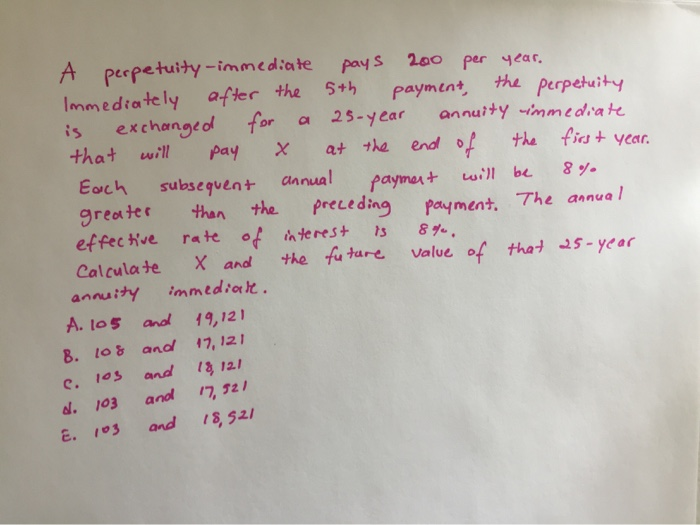 A perpetuity-immediate pays 200 per year.
Immediately after the 5th payment, the perpetuity
is exchanged for a 25-year annuity immediate
that will pay X at the end of the first year.
Each subsequent annual payment will be 8%
greater than the preceding payment. The annual
effective rate of interest is 8%.
Calculate X and the future value of that 25-year
annuity immediate.
A. 105 and 19,121
B. 108 and 17,121
C. 103 and 18,121
d. 103 and 17,521
E. 103 and 18,521